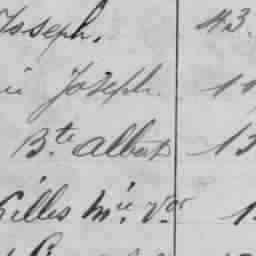 Joseph. 43.
Joseph. 11
Bte Albert 13
Gilles Mie Vor 1